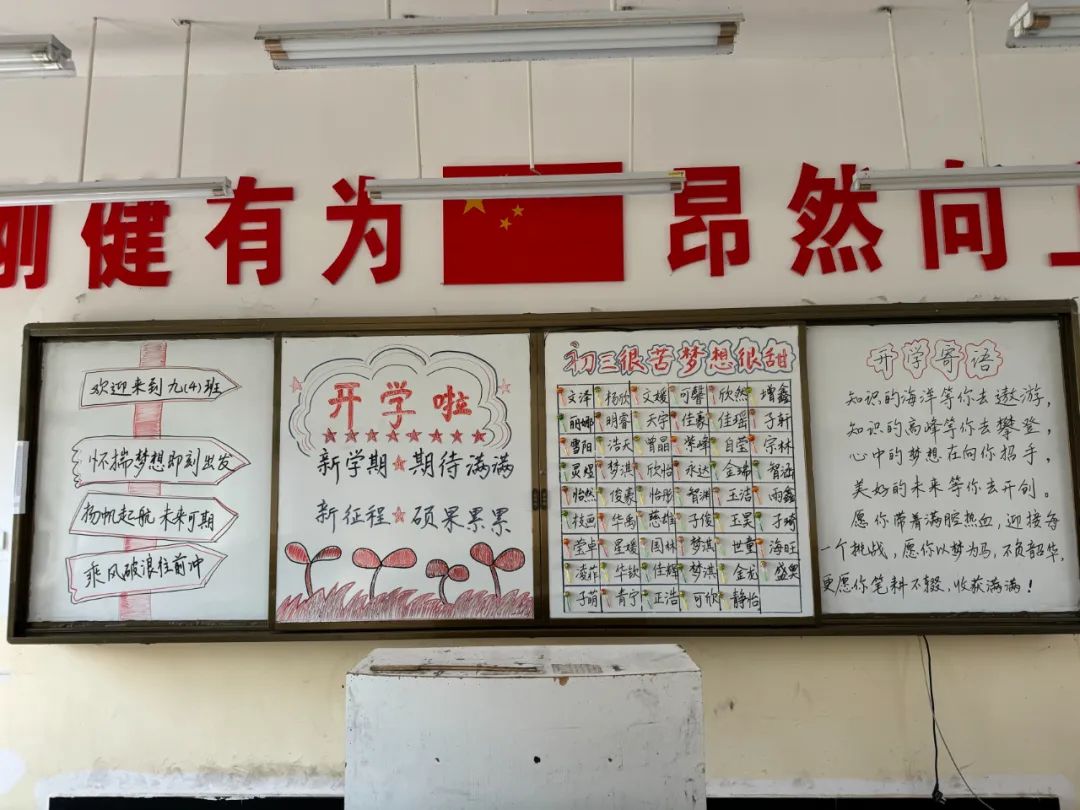 刚健有为 昂然向上
欢迎来到九(4)班
怀揣梦想即刻出发
扬帆起航 未来可期
乘风破浪往前冲
开学啦
新学期 期待满满
新征程 硕果累累
初三很苦梦想很甜
文泽 杨欣 文媛 可馨 欣然 增鑫
丽娜 明睿 天宇 佳豪 佳瑶 子轩
雪阳 浩天 曾晶 荣峰 自莹 宗林
灵煜 梦淇 欣怡 永达 金瑞 智涵
怡然 俊豪 怡彤 智渊 玉洁 雨鑫
技画 华禹 慈雄 子俊 玉昊 子琦
莹卓 星媛 国林 梦淇 世童 海旺
凌菲 华钦 佳辉 梦淇 金龙 盛昊
子萌 青宁 正浩 可欣 静怡
开学寄语
知识的海洋等你去遨游，
知识的高峰等你去攀登，
心中的梦想在向你招手，
美好的未来等你去开创。
愿你带着满腔热血，迎接每
一个挑战，愿你以梦为马，不负韶华，
更愿你笔耕不辍，收获满满！